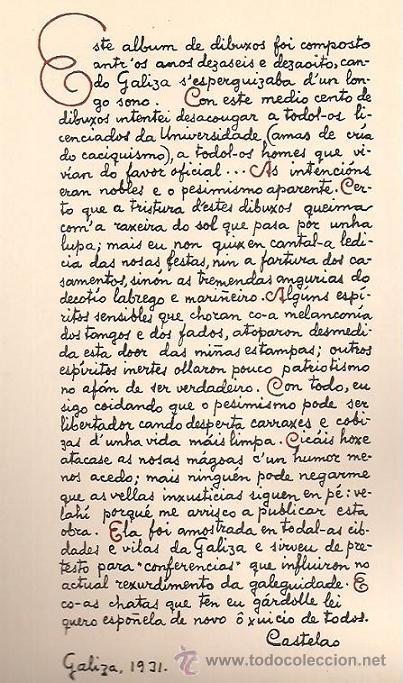 Este album de dibuxos foi composto
antr'os anos dezaseis e dezaoito, can-
do Galiza s'esperguizaba d'un lon-
go sono. Con este medio cento de
dibuxos intentei desacougar a todol-os li-
cenciados da Universidade (amas de cria
do caciquismo), a todol-os homes que vi-
vían do favor oficial... As intencións
eran nobles e o pesimismo aparente. Cer-
to que a tristura d'estes dibuxos queima
com'a raxeira do sol que pasa por unha
lupa; mais eu non quixen cantal-a ledi-
cia das nosas festas, nin a fartura dos ca-
samentos, sinón as tremendas angurias do
decotío labrego e mariñeiro. Alguns espí-
ritos sensibles que choran co-a melanconía
dos tangos e dos fados, atoparon desmedi-
da esta door das miñas estampas; outros
espíritos inertes ollaron pouco patriotismo
no afán de ser verdadeiro. Con todo, eu
sigo coidando que o pesimismo pode ser
libertador cando desperta carraxes e cobi-
zas d'unha vida máis limpa. Cicáis hoxe
atacase as nosas mágoas c'un humor me-
nos acedo; mais ninguén pode negarme
que as vellas inxusticias siguen en pé: ve-
lahí porqué me arrisco a publicar esta
obra. Ela foi amostrada en todal-as cib-
dades e vilas da Galiza e sirveu de pre-
testo para "conferencias" que influiron no
actual rexurdimento da galeguidade. E
co-as chatas que ten eu gárdolle lei
quero espoñela de novo ô xuicio de todos.
Castelao
Galiza, 1931.
www.todocoleccion.net